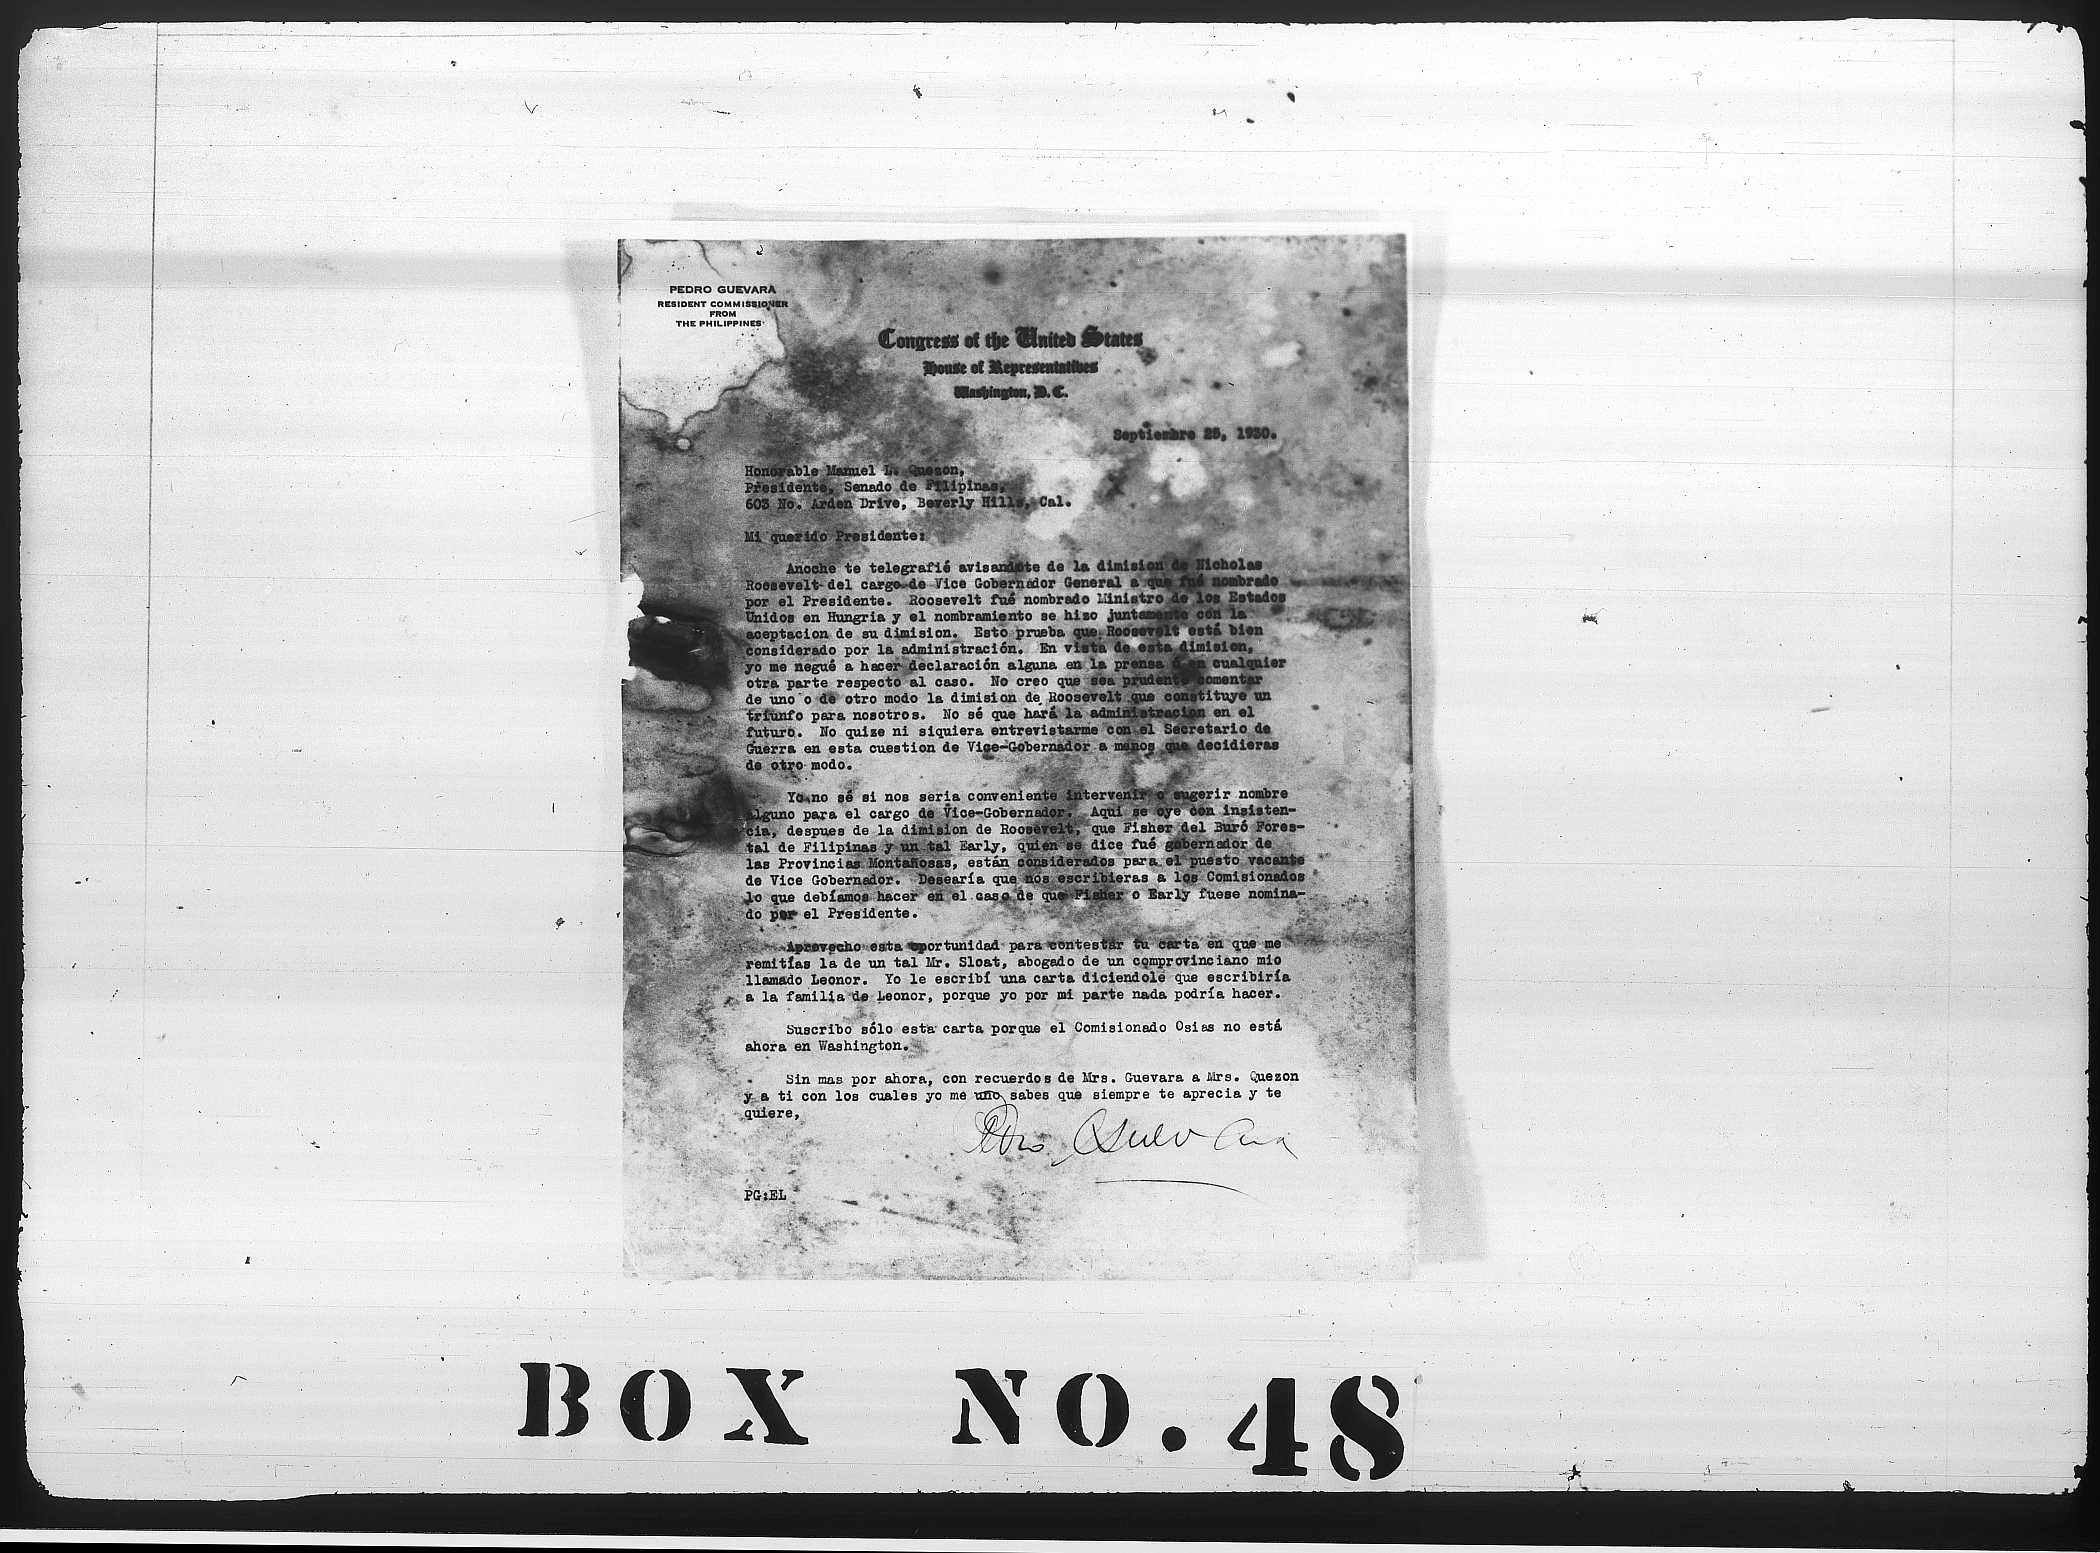 PEDRO GUEVARA
RESIDENT COMMISSIONER
FROM
THE PHILIPPINES
Congress of the United States
House of Representatives
Washington, D. C.
Septiembre 25, 1930.
Honorable Manuel L. Quezon,
Presidente, Senado de Filipinas,
603 No. Arden Drive, Beverly Hills, Cal.
Mi querido Presidente:
Anoche te telegrafié avisandote de la dimision de Nicholas
Roosevelt del cargo de Vice Gobernador General a que fué nombrado
por el Presidente. Roosevelt fué nombrado Ministro de los Estados
Unidos en Hungria y el nombramiento se hizo juntamente con la
aceptacion de su dimision. Esto prueba que Roosevelt está bien
considerado por la administración. En vista de esta dimision,
yo me negué a hacer declaración alguna en la prensa ó en cualquier
otra parte respecto al caso. No creo que sea prudente comentar
de uno o de otro modo la dimision de Roosevelt que constituye un
triunfo para nosotros. No sé que hará la administracion en el
futuro. No quize ni siquiera entrevistarme con el Secretario de
Guerra en esta cuestion de Vice-Gobernador a menos que decidieras
de otro modo.
Yo no sé si nos seria conveniente intervenir o sugerir nombre
alguno para el cargo de Vice-Gobernador. Aqui se oye con insisten-
cia, despues de la dimision de Roosevelt, que Fisher del Buró Fores-
tal de Filipinas y un tal Early, quien se dice fué gobernador de
las Provincias Montañosas, están considerados para el puesto vacante
de Vice Gobernador. Desearía que nos escribieras a los Comisionados
lo que debíamos hacer en el caso de que Fisher o Early fuese nomina-
do por el Presidente.
Aprovecho esta oportunidad para contestar tu carta en que me
remitías la de un tal Mr. Sloat, abogado de un comprovinciano mio
llamado Leonor. Yo le escribí una carta diciendole que escribiría
a la familia de Leonor, porque yo por mi parte nada podría hacer.
Suscribo sólo esta carta porque el Comisionado Osias no está
ahora en Washington.
Sin mas por ahora, con recuerdos de Mrs. Guevara a Mrs. Quezon
y a ti con los cuales yo me uno sabes que siempre te aprecia y te
quiere,
Pedro Guevara
PG:EL
BOX NO. 48